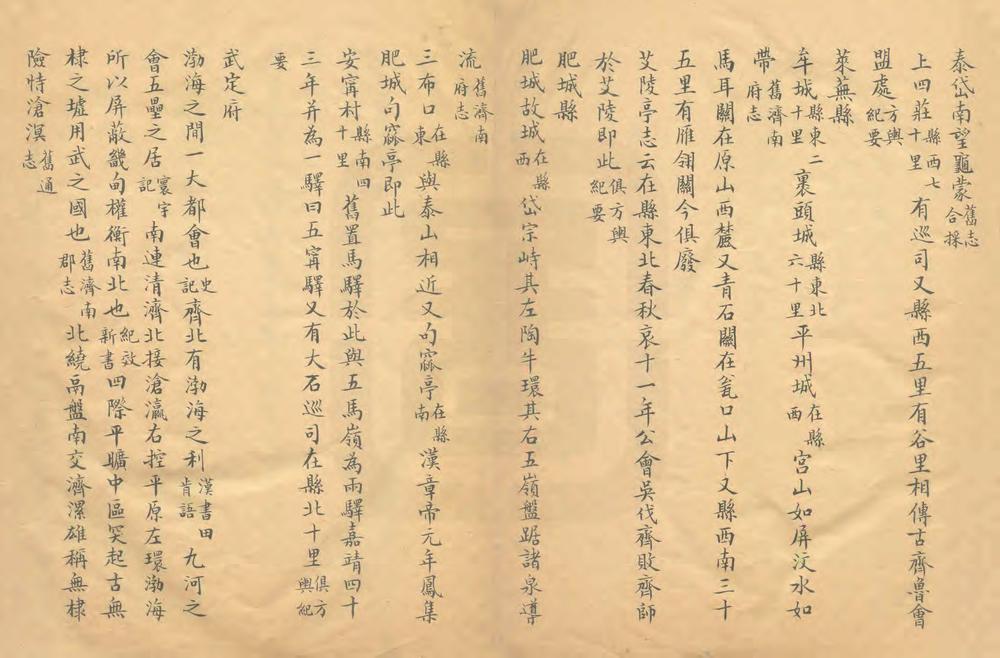 泰岱南望龜蒙舊志合採
上四莊縣西七十里有巡司又縣西五里有谷里相傳古齊魯會
盟處方輿紀要
萊蕪縣
牟城縣東二十里裹頭城縣東北六十里平州城在縣西宮山如屏汶水如
帶舊濟南府志
馬耳關在原山西麓又青石關在瓮口山下又縣西南三十
五里有雁翎關今俱廢
艾陵亭志云在縣東北春秋哀十一年公會吳伐齊敗齊師
於艾陵即此俱方輿紀要
肥城縣
肥城故城在縣西岱宗峙其左陶牛環其右五嶺盤踞諸泉導
流舊濟南府志
三布口在縣東與泰山相近又句窳亭在縣南漢章帝元年鳳集
肥城句窳亭即此
安寗村縣南四十里舊置馬驛於此與五馬嶺為兩驛嘉靖四十
三年并為一驛曰五寗驛又有大石巡司在縣北十里俱方輿紀
要
武定府
渤海之間一大都會也史記齊北有渤海之利漢書田肯語九河之
會五壘之居寰宇記南連清濟北接滄瀛右控平原左環渤海
所以屏蔽畿甸權衡南北也紀效新書四際平曠中區突起古無
棣之墟用武之國也舊濟南郡志北繞鬲盤南交濟漯雄稱無棣
險恃滄溟舊通志